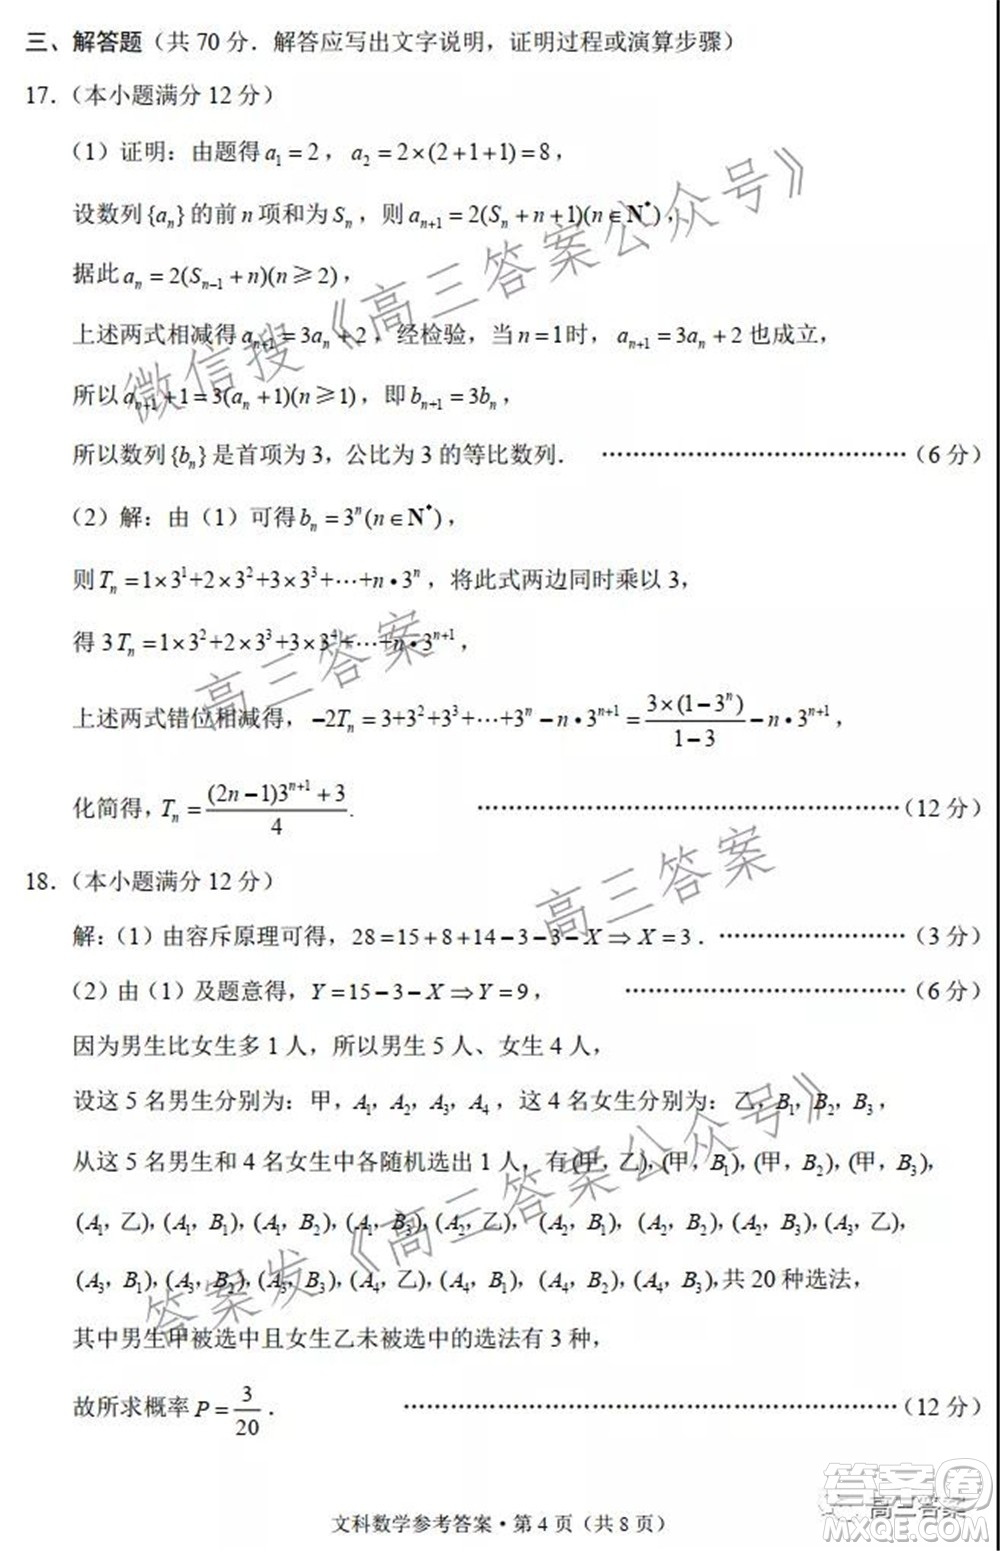 三、解答题（共 70 分．解答应写出文字说明，证明过程或演算步骤）
17．（本小题满分 12 分）
（1）证明：由题得 a₁=2，a₂=2×(2+1+1)=8，
设数列{aₙ}的前 n 项和为 Sₙ，则 aₙ₊₁=2(Sₙ+n+1)(n∈N*)，
据此 aₙ=2(Sₙ₋₁+n)(n≥2)，
上述两式相减得 aₙ₊₁=3aₙ+2，经检验，当 n=1时，aₙ₊₁=3aₙ+2 也成立，
所以 aₙ₊₁+1=3(aₙ+1)(n≥1)，即 bₙ₊₁=3bₙ，
所以数列{bₙ}是首项为 3，公比为 3 的等比数列．……………………………………（6 分）
（2）解：由（1）可得 bₙ=3ⁿ(n∈N*)，
则 Tₙ=1×3¹+2×3²+3×3³+⋯+n•3ⁿ，将此式两边同时乘以 3，
得 3Tₙ=1×3²+2×3³+3×3⁴+⋯+n•3ⁿ⁺¹，
上述两式错位相减得，−2Tₙ=3+3²+3³+⋯+3ⁿ−n•3ⁿ⁺¹=3×(1−3ⁿ)/(1−3)−n•3ⁿ⁺¹，
化简得，Tₙ=((2n−1)3ⁿ⁺¹+3)/4. ……………………………………………（12 分）
18．（本小题满分 12 分）
解：（1）由容斥原理可得，28=15+8+14−3−3−X⇒X=3．………………………（3 分）
（2）由（1）及题意得，Y=15−3−X⇒Y=9，…………………………………（6 分）
因为男生比女生多 1 人，所以男生 5 人、女生 4 人，
设这 5 名男生分别为：甲，A₁，A₂，A₃，A₄，这 4 名女生分别为：乙，B₁，B₂，B₃，
从这 5 名男生和 4 名女生中各随机选出 1 人，有(甲，乙)，(甲，B₁)，(甲，B₂)，(甲，B₃)，
(A₁，乙)，(A₁，B₁)，(A₁，B₂)，(A₁，B₃)，(A₂，乙)，(A₂，B₁)，(A₂，B₂)，(A₂，B₃)，(A₃，乙)，
(A₃，B₁)，(A₃，B₂)，(A₃，B₃)，(A₄，乙)，(A₄，B₁)，(A₄，B₂)，(A₄，B₃)，共 20 种选法，
其中男生甲被选中且女生乙未被选中的选法有 3 种，
故所求概率 P=3/20．………………………………………………………（12 分）
文科数学参考答案·第 4 页（共 8 页）
微信搜《高三答案公众号》
高三答案
高三答案
答案发《高三答案公众号》
高三答案
答案卷
MXQE.COM